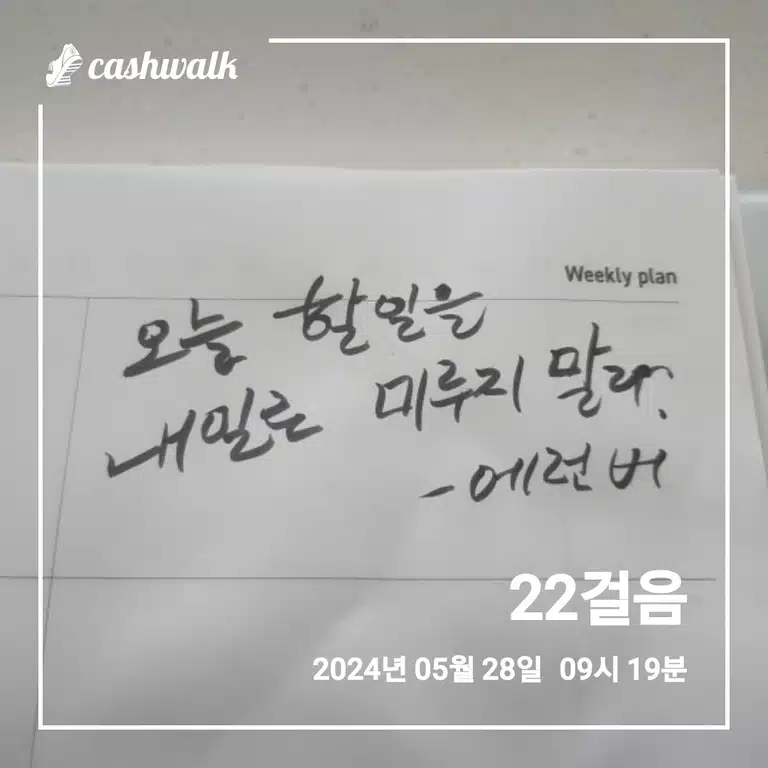 cashwalk
Weekly plan
오늘 할일을
내일로 미루지 말라.
-에런버
22걸음
2024년 05월 28일 09시 19분